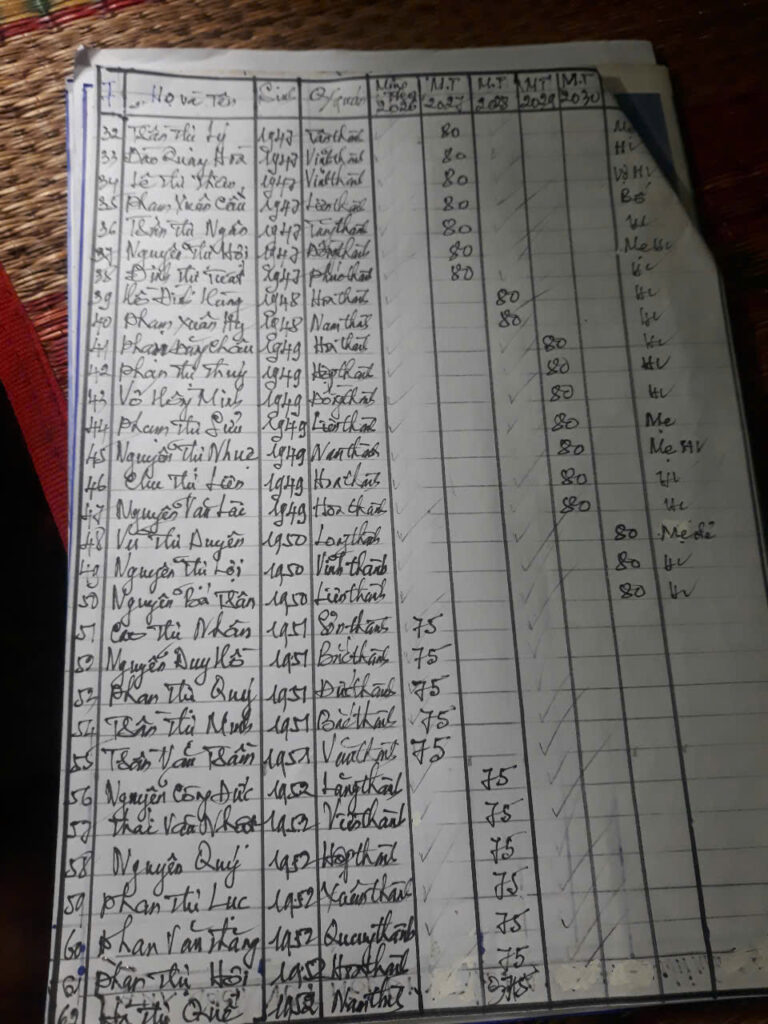 T Họ và Tên Sinh Q/quán Mừng thọ 2026 M.T 2027 M.T 2028 M.T 2029 M.T 2030
32 Trần Thị Lý 1947 Tân thành 80 Mẹ
33 Đào Quang Hoà 1947 Vĩnh thành 80 HV
34 Lê Thị Thân 1947 Vĩnh thành 80 Vợ HV
35 Phạm Xuân Cầu 1947 Liên thành 80 Bố
36 Trần Thị Ngân 1947 Tân thành 80 HV
37 Nguyễn Thị Hội 1947 Đồng thành 80 Mẹ HV
38 Đinh Thị 1947 Phúc thành 80 HV
39 Hồ Đình Hùng 1948 Hoà thành 80 HV
40 Phạm Xuân Hy 1948 Nam thành 80 HV
41 Phan Đăng Châu 1949 Hoà thành 80 HV
42 Phan Thị Thuý 1949 Hợp thành 80 HV
43 Võ Hồng Minh 1949 Đồng thành 80 HV
44 Phạm Thị Sửu 1949 Liên thành 80 Mẹ
45 Nguyễn Thị Như 1949 Nam thành 80 Mẹ HV
46 Chu Thị Liên 1949 Hoa thành 80 HV
47 Nguyễn Văn Lac 1949 Hoa thành 80 HV
48 Vũ Thị Duyên 1950 Long thành 80 Mẹ đẻ
49 Nguyễn Thị Lợi 1950 Vĩnh thành 80 HV
50 Nguyễn Bá Tân 1950 Liên thành 80 HV
51 Cao Thị Nhân 1951 Sơn thành 75
52 Nguyễn Duy Hồ 1951 Bắc thành 75
53 Phan Thị Quý 1951 Đức thành 75
54 Trần Thị Minh 1951 Bắc thành 75
55 Trần Văn Trâm 1951 Văn thành 75
56 Nguyễn Công Đức 1952 Lăng thành 75
57 Thái Văn 1952 Viên thành 75
58 Nguyễn Quý 1952 Hợp thành 75
59 Phan Thị Luc 1952 Xuân thành 75
60 Phan Văn Thăng 1952 Quang thành 75
61 Phan Thị Hội 1952 Hoa thành 75
62 Thị Quế 1952 Nam thành 75